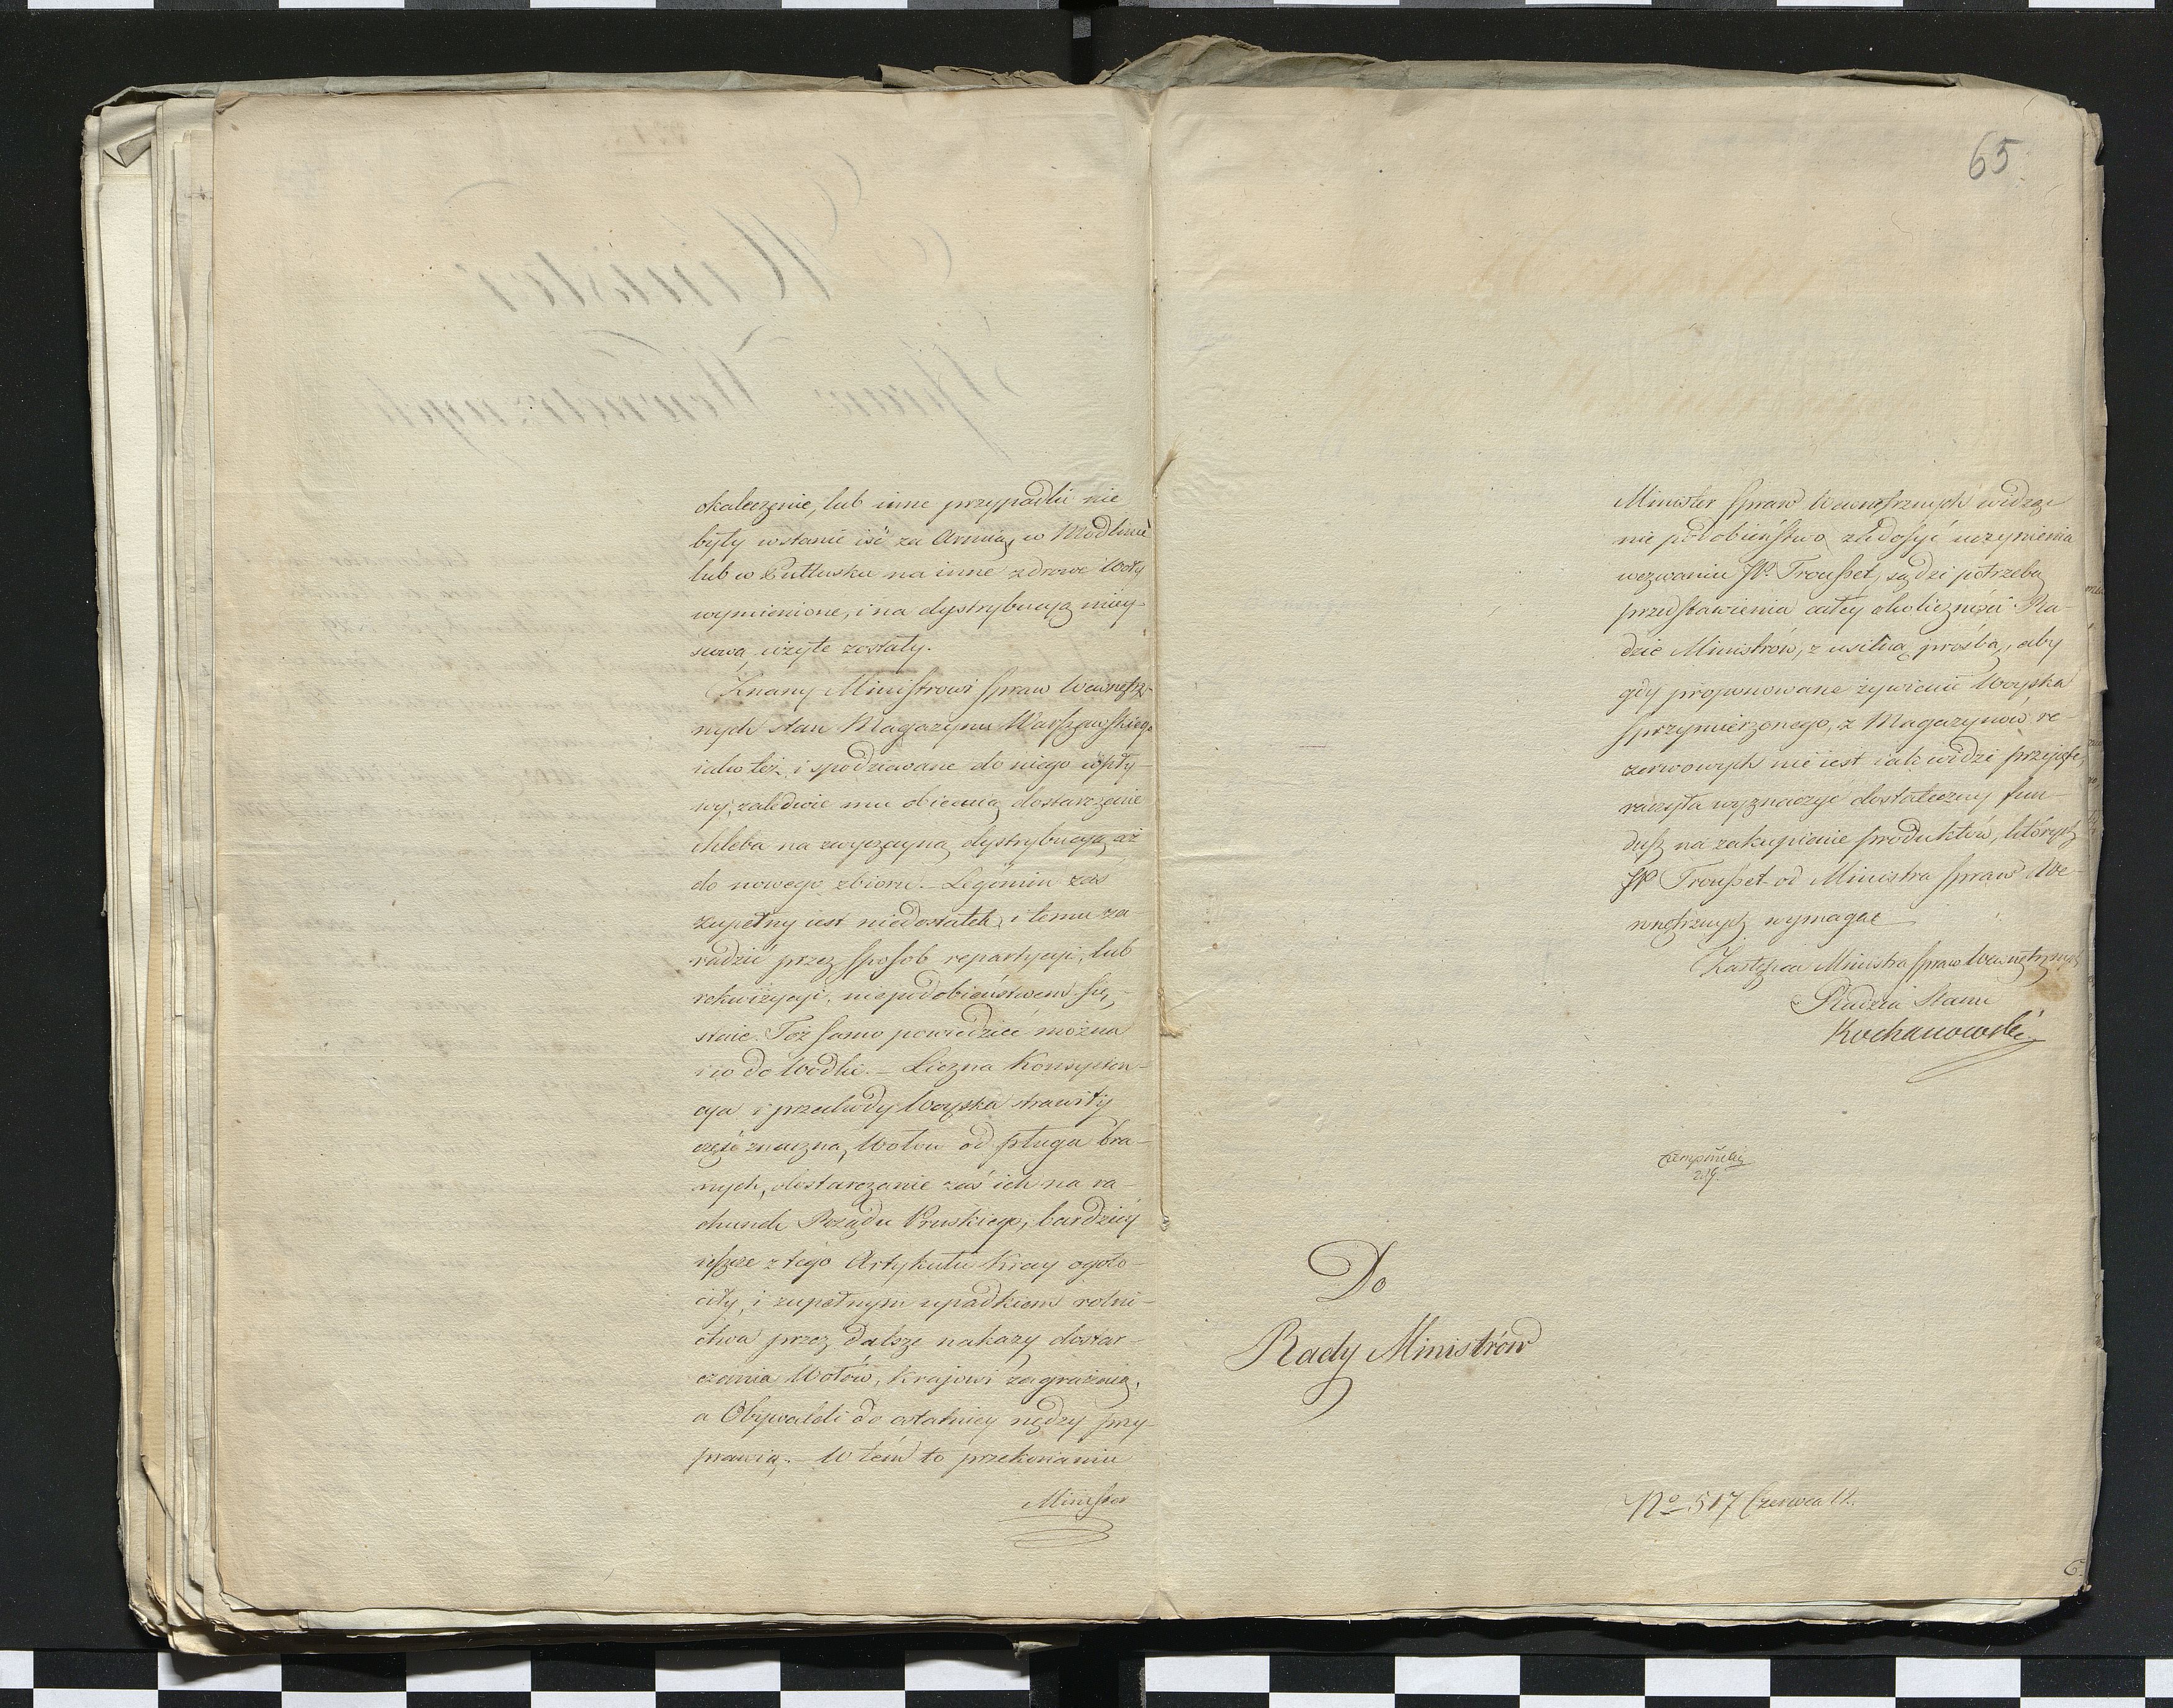 okaleczenie, lub inne przypadki nie
były wstanie iść za Armią, w Modlinie
lub w Pułtusku na inne zdrowe Woły
wymienione, i na dystrybucyą miey-
scową użyte zostały.
Znany Ministrowi Spraw Wewnętrz-
nych stan Magazynu Warszawskiego
iako też i spodziewane do niego wpły-
wy, zaledwie mu obiecuią dostarczenie
chleba na zwyczayną dystrybucyą aż
do nowego zbioru. – Legomin zaś
zupełny iest niedostatek, i temu za-
radzić przez sposób repartycyi, lub
rekwizycyi, niepodobieństwem się
staie. Toż samo powiedzieć można
co do Wódki. – Liczna Konsysten-
cya i przechody Woyska strawiły
część znaczną Wołów od pługa bra-
nych, dostarczanie zaś ich na ra-
chunek Rządu Pruskiego, bardziey
ieszcze z tego Artykułu Kray ogoło-
ciły, i zupełnym upadkiem rolni-
ctwa przez dalsze nakazy dostar-
czania Wołów, Krajowi zagrażaią,
a Obywateli do ostatniey nędzy przy-
prawią. – W tém to przekonaniu
Minister
65.
Minister Spraw Wewnętrznych widząc
nie podobieństwo zadosyć uczynienia
wezwaniu JP. Trousset, sądzi potrzebą
przedstawienia całey okoliczności Ra-
dzie Ministrów, z usilną prośbą, aby
gdy proponowane żywienie Woyska
sprzymierzonego, z Magazynów re-
zerwowych nie iest iak widzi przyjęte,
raczyła wyznaczyć dostateczny fun-
dusz na zakupienie produktów, których
JP Trousset od Ministra Spraw We-
wnętrznych wymaga
Zastępca Ministra Spraw Wewnętrznych
Radzca Stanu
Kochanowski
Do
Rady Ministrów
No 517 Czerwca 12.